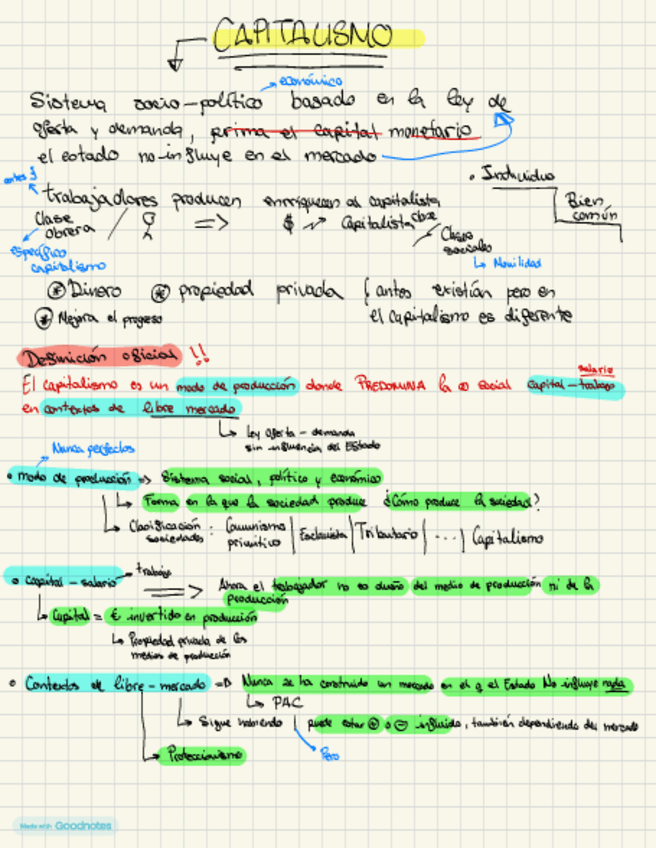 CAPITALISMO
económico
Sistema socio-político basado en la ley de
oferta y demanda, prima el capital monetario
el estado no influye en el mercado
antes
• Individuo
trabajadores producen enriquecen al capitalista
Bien común
Clase obrera => $ Capitalista clase
Clases sociales
Específico capitalismo
↳ Movilidad
* Dinero * propiedad privada { antes existían pero en
* Mejora el progreso el capitalismo es diferente
Definición oficial !!
salario
El capitalismo es un modo de producción donde PREDOMINA la social capital-trabajo
en contextos de libre mercado
↳ ley oferta-demanda
sin influencia del Estado
Nunca perfectos
• modo de producción => Sistema social, político y económico
↳ Forma en la que la sociedad produce ¿Cómo produce la sociedad?
↳ Clasificación sociedades: Comunismo primitivo | Esclavista | Tributario | ... | Capitalismo
• Capital-salario → trabajo => Ahora el trabajador no es dueño del medio de producción ni de la
producción
↳ Capital = € invertido en producción
↳ Propiedad privada de los
medios de producción
• Contextos de libre-mercado => Nunca se ha construido un mercado en el q el Estado No influye nada
↳ PAC
↳ Sigue habiendo | puede estar + o - influido, también dependiendo del mercado
↳ Proteccionismo
Pero
Made with Goodnotes